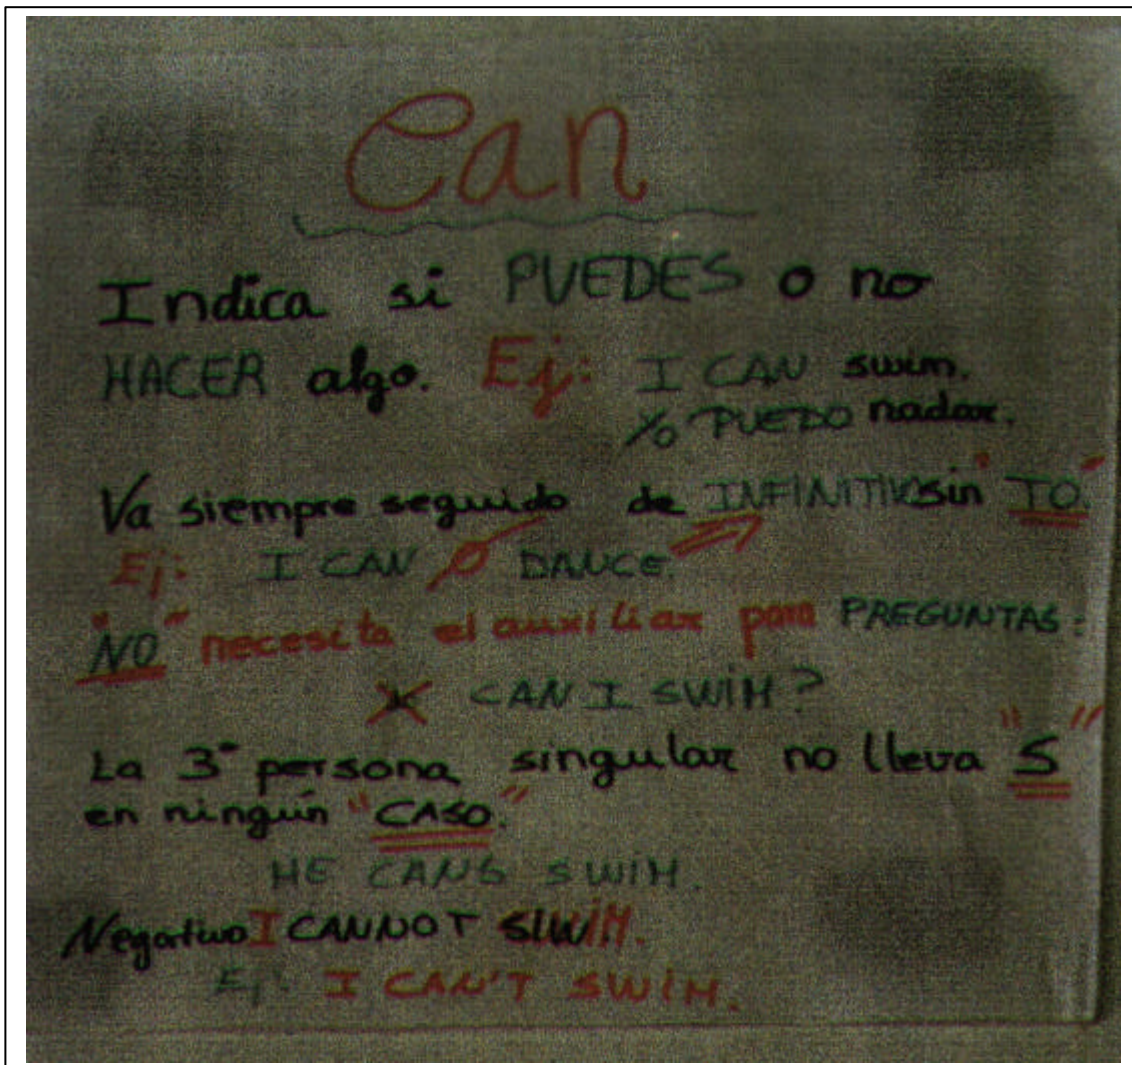 Can
Indica si PUEDES o no
HACER algo. Ej: I CAN swim.
Yo PUEDO nadar.
Va siempre seguido de INFINITIVO sin "TO".
Ej: I CAN DANCE.
"NO" necesita el auxiliar para PREGUNTAS:
CAN I SWIM?
La 3ª persona singular no lleva "S"
en ningún "CASO".
HE CANS SWIM.
Negativo I CANNOT SWIM.
Ej: I CAN'T SWIM.